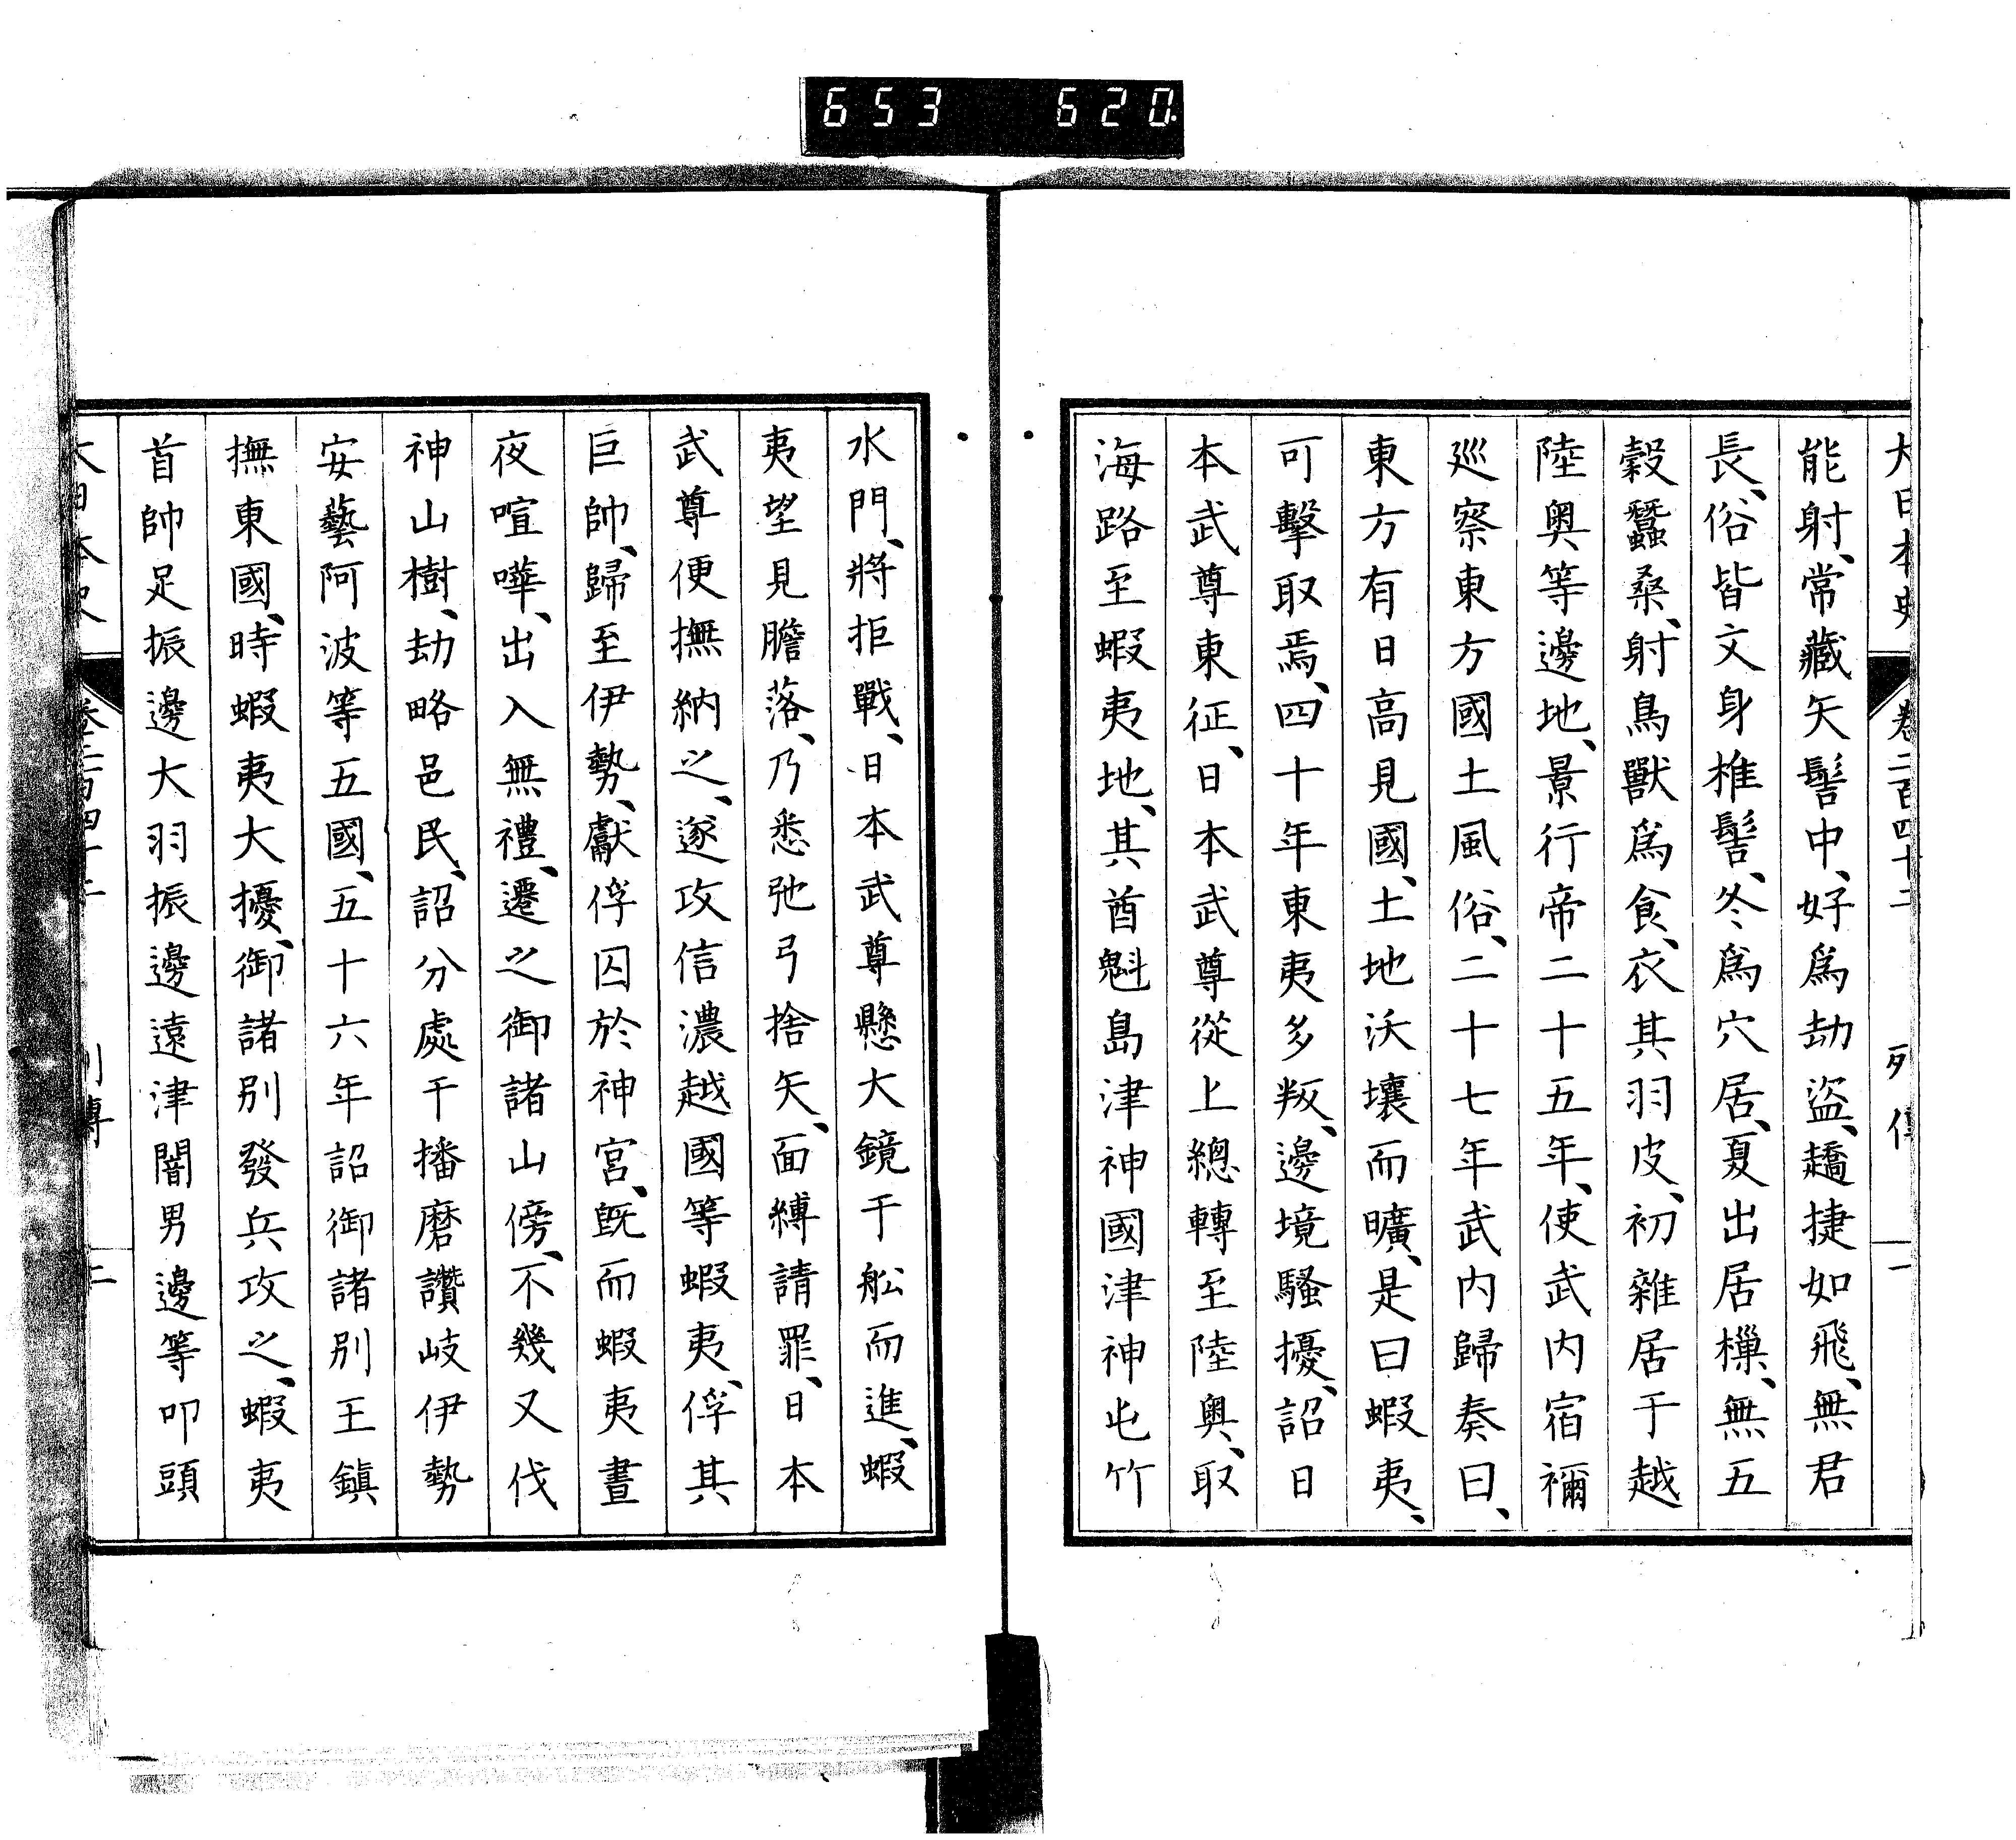 653 620
大日本史 卷二百四十二 列傳 一
能射、常藏矢髻中、好爲劫盜、趫捷如飛、無君
長、俗皆文身椎髻、冬爲穴居、夏出居樔、無五
穀蠶桑、射鳥獸爲食、衣其羽皮、初雜居于越
陸奧等邊地、景行帝二十五年、使武内宿禰
巡察東方國土風俗、二十七年武内歸奏曰、
東方有日高見國、土地沃壤而曠、是曰蝦夷、
可擊取焉、四十年東夷多叛、邊境騷擾、詔日
本武尊東征、日本武尊從上總轉至陸奧、取
海路至蝦夷地、其酋魁島津神國津神屯竹
水門、將拒戰、日本武尊懸大鏡于舩而進、蝦
夷望見膽落、乃悉弛弓捨矢、面縛請罪、日本
武尊便撫納之、遂攻信濃越國等蝦夷、俘其
巨帥、歸至伊勢、獻俘囚於神宮、既而蝦夷晝
夜喧嘩、出入無禮、遷之御諸山傍、不幾又伐
神山樹、劫略邑民、詔分處干播磨讚岐伊勢
安藝阿波等五國、五十六年詔御諸別王鎭
撫東國、時蝦夷大擾、御諸別發兵攻之、蝦夷
首帥足振邊大羽振邊遠津闇男邊等叩頭
大日本史 卷二百四十二 列傳 二